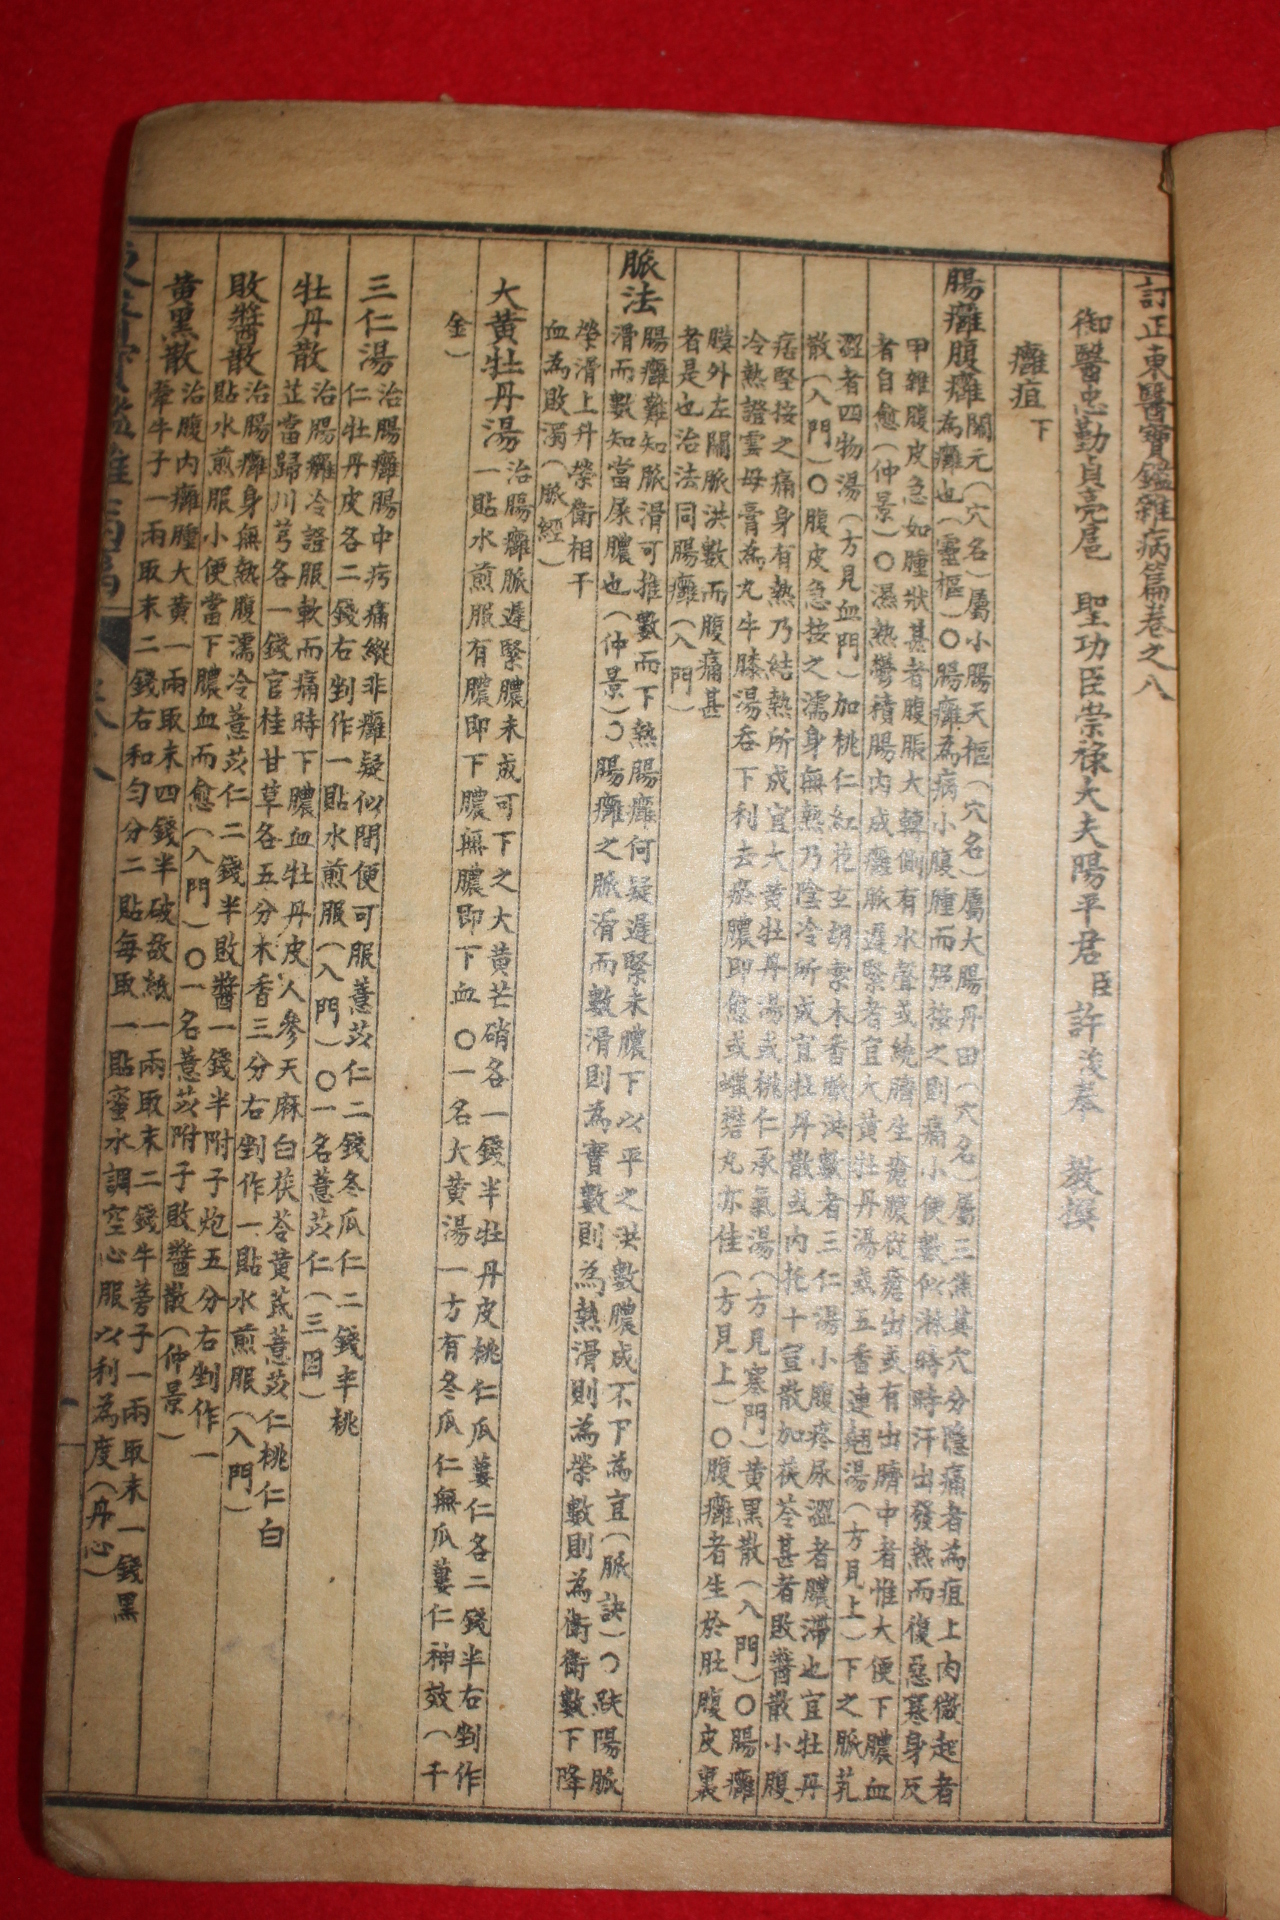 訂正東醫寶鑑雜病篇卷之八
御醫忠勤貞亮扈 聖功臣崇祿大夫陽平君臣許浚奉 敎撰
癰疽下
腸癰腹癰
關元(穴名)屬小腸天樞(穴名)屬大腸丹田(穴名)屬三焦其穴分隱痛者為疽上肉微起者
為癰也(靈樞)○腸癰為病小腹腫而强按之則痛小便數似淋時時汗出發熱而復惡寒身皮
甲錯腹皮急如腫狀甚者腹脹大轉側有水聲或繞臍生瘡膿從瘡出或有出臍中者惟大便下膿血
者自愈(仲景)○濕熱鬱積腸內成癰脈遲緊者宜大黃牡丹湯或五香連翹湯(方見上)下之脈芤
澀者四物湯(方見血門)加桃仁紅花玄胡索木香脈洪數者三仁湯小腹疼尿澀者膿滯也宜牡丹
散(入門)○腹皮急按之濡身無熱乃陰冷所成宜牡丹散或內托十宣散加茯苓甚者敗醬散小腹
痞堅按之痛身有熱乃結熱所成宜大黃牡丹湯或桃仁承氣湯(方見寒門)黃黑散(入門)○腸癰
冷熱證雲母膏為丸牛膝湯呑下利去瘀膿卽愈或蠟礬丸亦佳(方見上)○腹癰者生於肚腹皮裏
膜外左關脈洪數而腹痛甚
者是也治法同腸癰(入門)
脈法
腸癰難知脈滑可推數而下熱腸癰何疑遲緊未膿下以平之洪數膿成不下為宜(脈訣)○趺陽脈
滑而數知當屎膿也(仲景)○腸癰之脈滑而數滑則為實數則為熱滑則為榮數則為衛衛數下降
榮滑上升榮衛相干
血為敗濁(脈經)
大黃牡丹湯
治腸癰脈遲緊膿未成可下之大黃芒硝各一錢半牡丹皮桃仁瓜蔞仁各二錢半右剉作
一貼水煎服有膿卽下膿無膿卽下血○一名大黃湯一方有冬瓜仁無瓜蔞仁神效(千
金)
三仁湯
治腸癰腸中㽲痛縱非癰疑似間便可服薏苡仁二錢冬瓜仁二錢半桃
仁牡丹皮各二錢右剉作一貼水煎服(入門)○一名薏苡仁(三因)
牡丹散
治腸癰冷證服軟而痛時下膿血牡丹皮人參天麻白茯苓黃芪薏苡仁桃仁白
芷當歸川芎各一錢官桂甘草各五分木香三分右剉作一貼水煎服(入門)
敗醬散
治腸癰身無熱腹濡冷薏苡仁二錢半敗醬一錢半附子炮五分右剉作一
貼水煎服小便當下膿血而愈(入門)○一名薏苡附子敗醬散(仲景)
黃黑散
治腹內癰腫大黃一兩取末四錢半破故紙一兩取末二錢牛蒡子一兩取末一錢黑
牽牛子一兩取末二錢右和勻分二貼每取一貼蜜水調空心服以利為度(丹心)